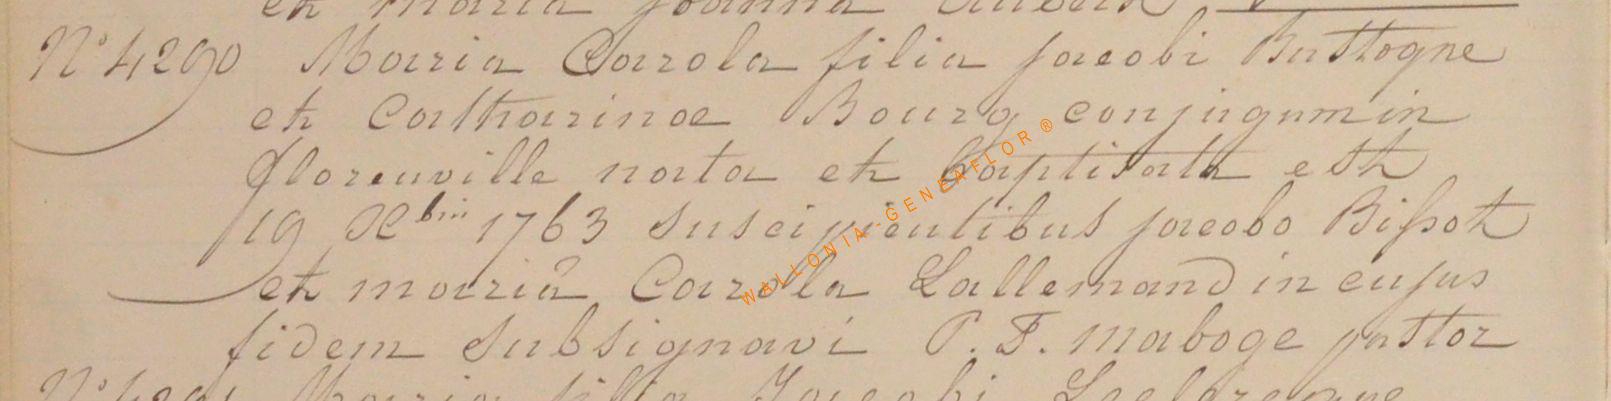 et maria joanna Aubert
N° 4290 Maria Carola filia jacobi Bastogne
et Catharinae Bourg conjugum in
florenville nata et baptisata est
19 Xbris 1763 suscipientibus jacobo Bissot
et mariâ Carola Lallemand in cujus
fidem subsignavi P. F. maboge pastor
N° 4291 Maria filia Jacobi
WALLONIA-GENEAFLOR ®